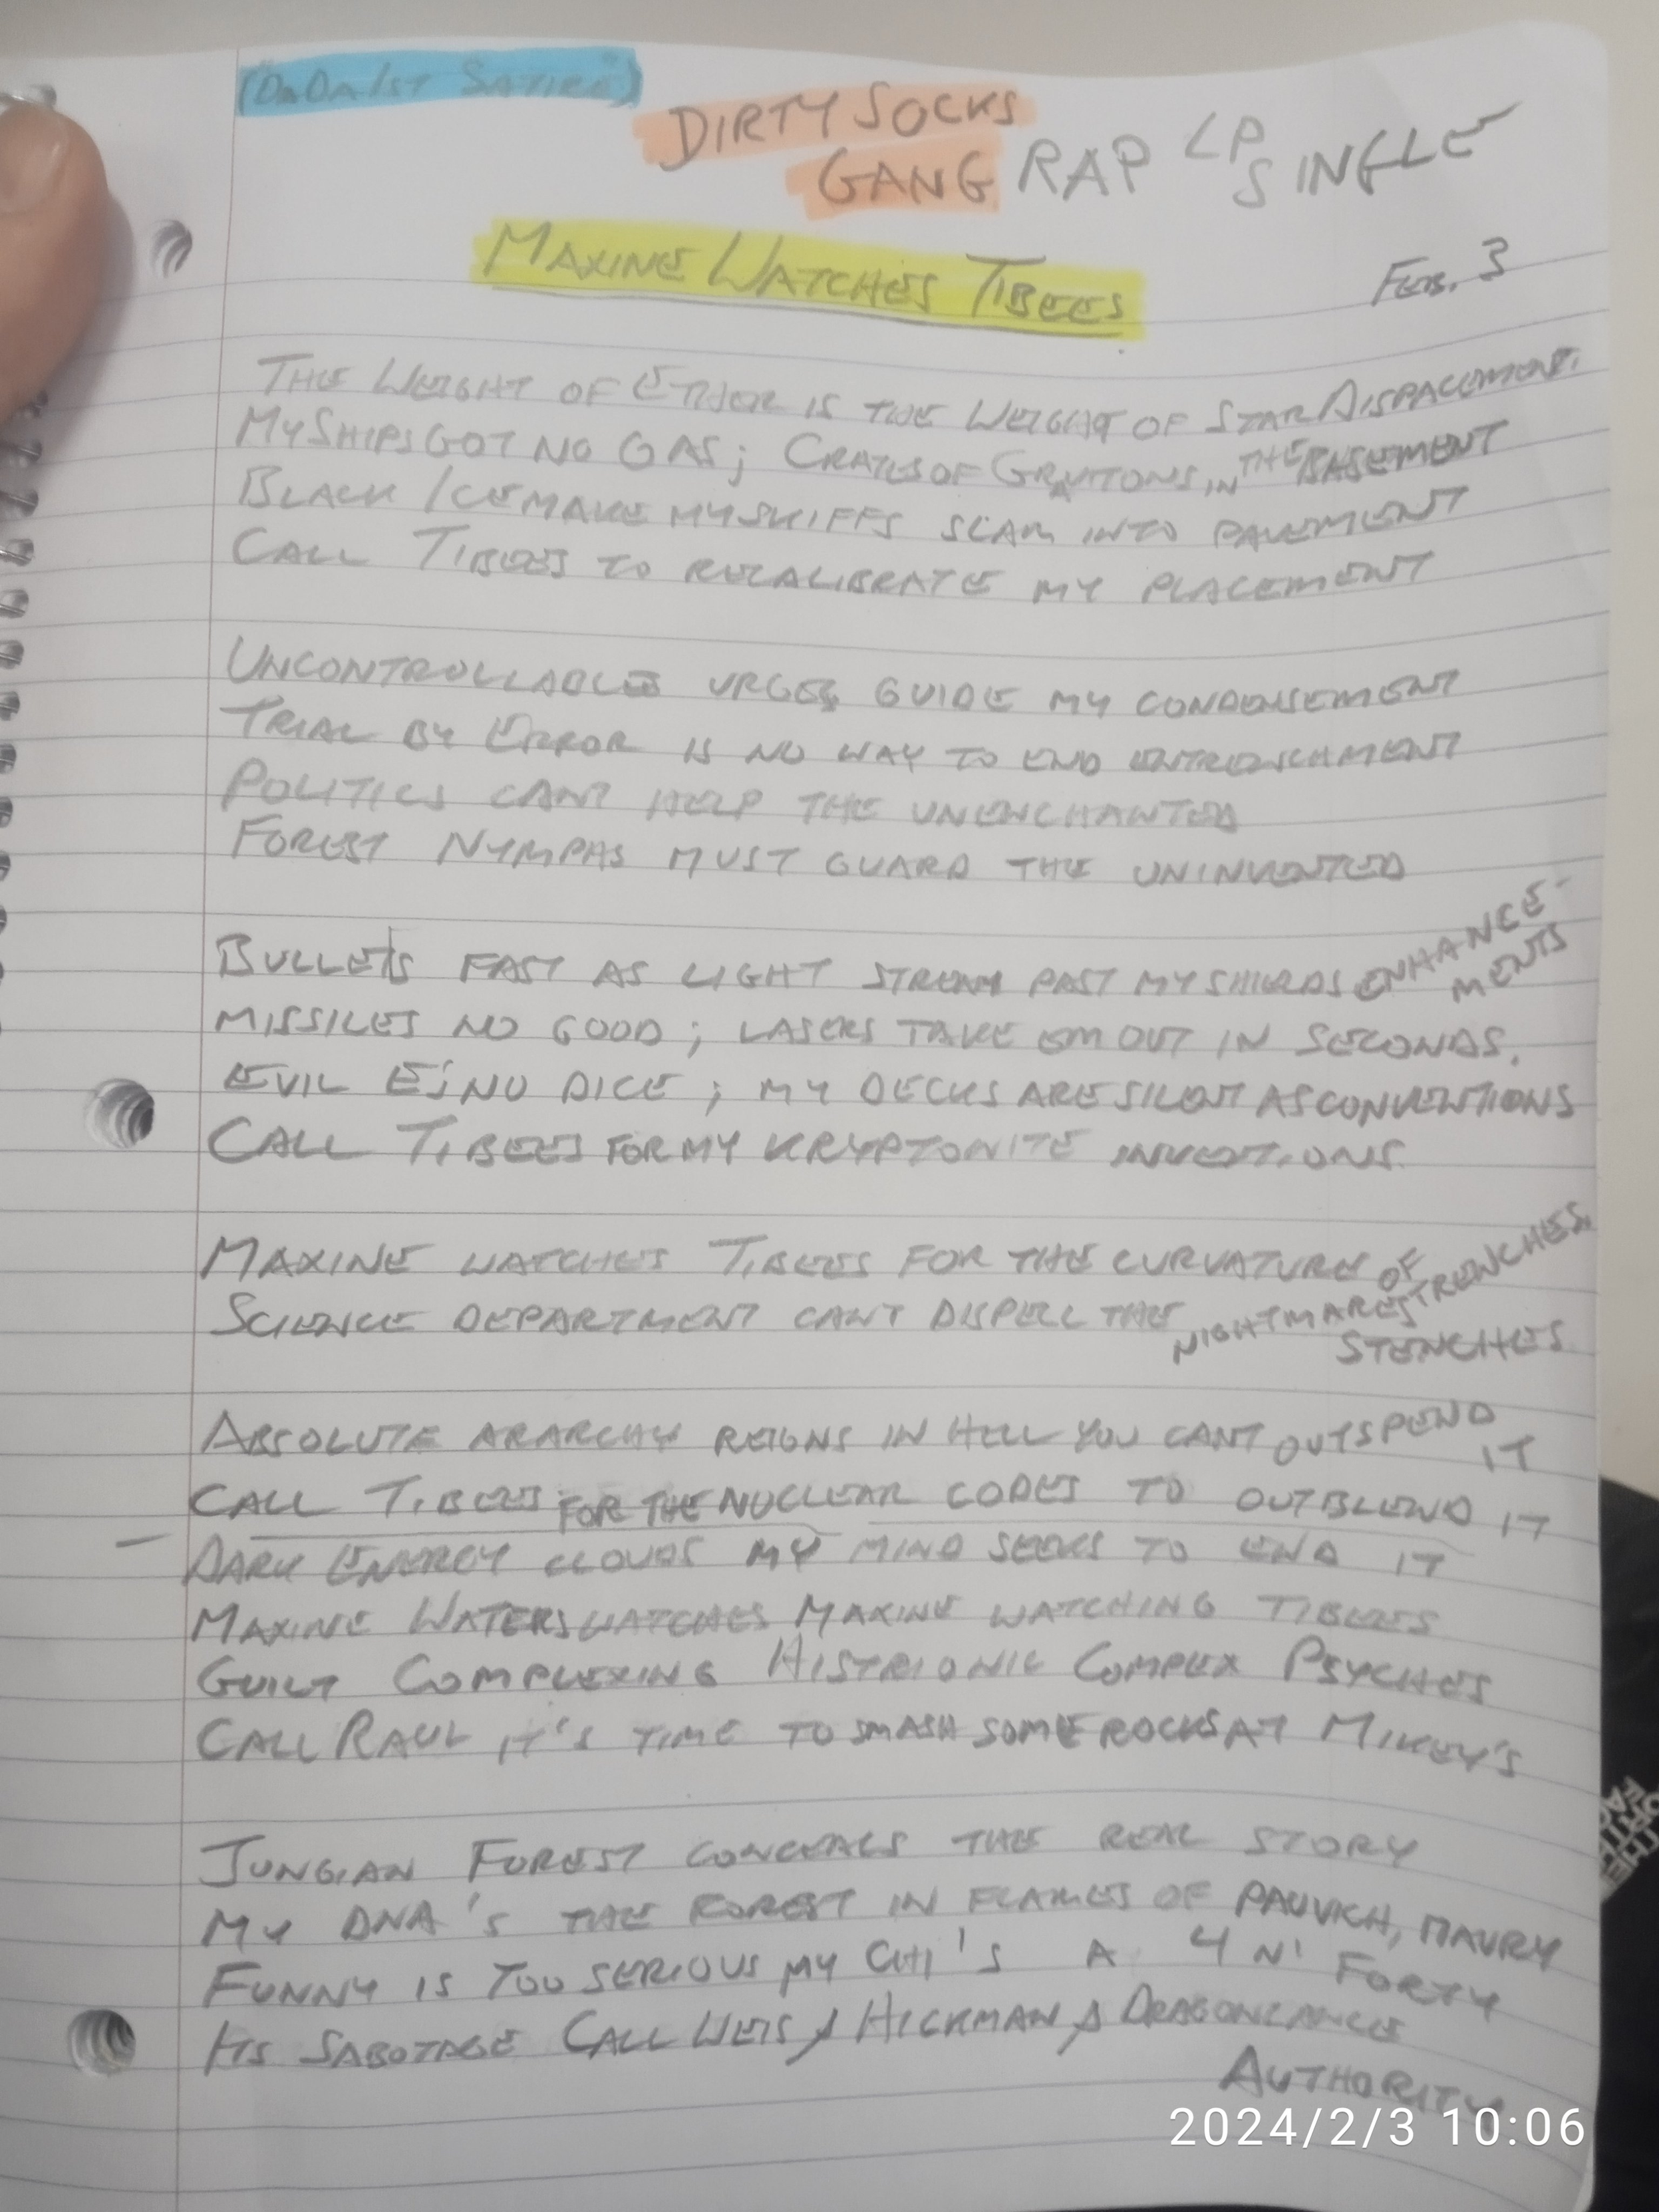 ("DaDaist Satire")
DIRTY SOCKS
GANG RAP LP SINGLE
MAXINE WATCHES TIBEES
FEB. 3
THE WEIGHT OF ETHER IS THE WEIGHT OF STAR DISPACEMENT.
MY SHIPS GOT NO GAS; CRATES OF GRAVITONS IN THE BASEMENT
BLACK ICE MAKE MY SKIFFS SLAM INTO PAVEMENT
CALL TIBEES TO RECALIBRATE MY PLACEMENT
UNCONTROLLABLE URGES GUIDE MY CONDENSEMENT
TRIAL BY ERROR IS NO WAY TO END ENTRENCHMENT
POLITICS CANT HELP THE UNENCHANTED
FOREST NYMPHS MUST GUARD THE UNINVENTED
BULLETS FAST AS LIGHT STREAM PAST MY SHIELDS ENHANCE-
MENTS
MISSILES NO GOOD; LASERS TAKE EM OUT IN SECONDS.
EVIL E'S NO DICE; MY DECKS ARE SILENT AS CONVENTIONS
CALL TIBEES FOR MY KRYPTONITE INVENTIONS.
MAXINE WATCHES TIBEES FOR THE CURVATURE OF TRENCHES.
SCIENCE DEPARTMENT CANT DISPELL THE NIGHTMARES
STENCHES
ABSOLUTE ARARCHY REIGNS IN HELL YOU CANT OUTSPEND
IT
CALL TIBEES FOR THE NUCLEAR CODES TO OUTBLEND IT
DARK ENERGY CLOUDS MY MIND SEEKS TO END IT
MAXINE WATERS WATCHES MAXINE WATCHING TIBEES
GUILT COMPLEXING HISTRIONIC COMPLEX PSYCHES
CALL RAUL IT'S TIME TO SMASH SOME ROCKS AT MIKEY'S
JUNGIAN FOREST CONCEALS THE REAL STORY
MY DNA'S THE FOREST IN FLAMES OF MAURY
FUNNY IS TOO SERIOUS MY CHI'S A 4 N' FORTY
ITS SABOTAGE CALL WEIS / HICKMAN / DRAGONLANCE
AUTHORITY
2024/2/3 10:06